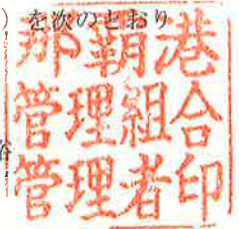 )を次のとおり
那覇港
管理組合
管理者印